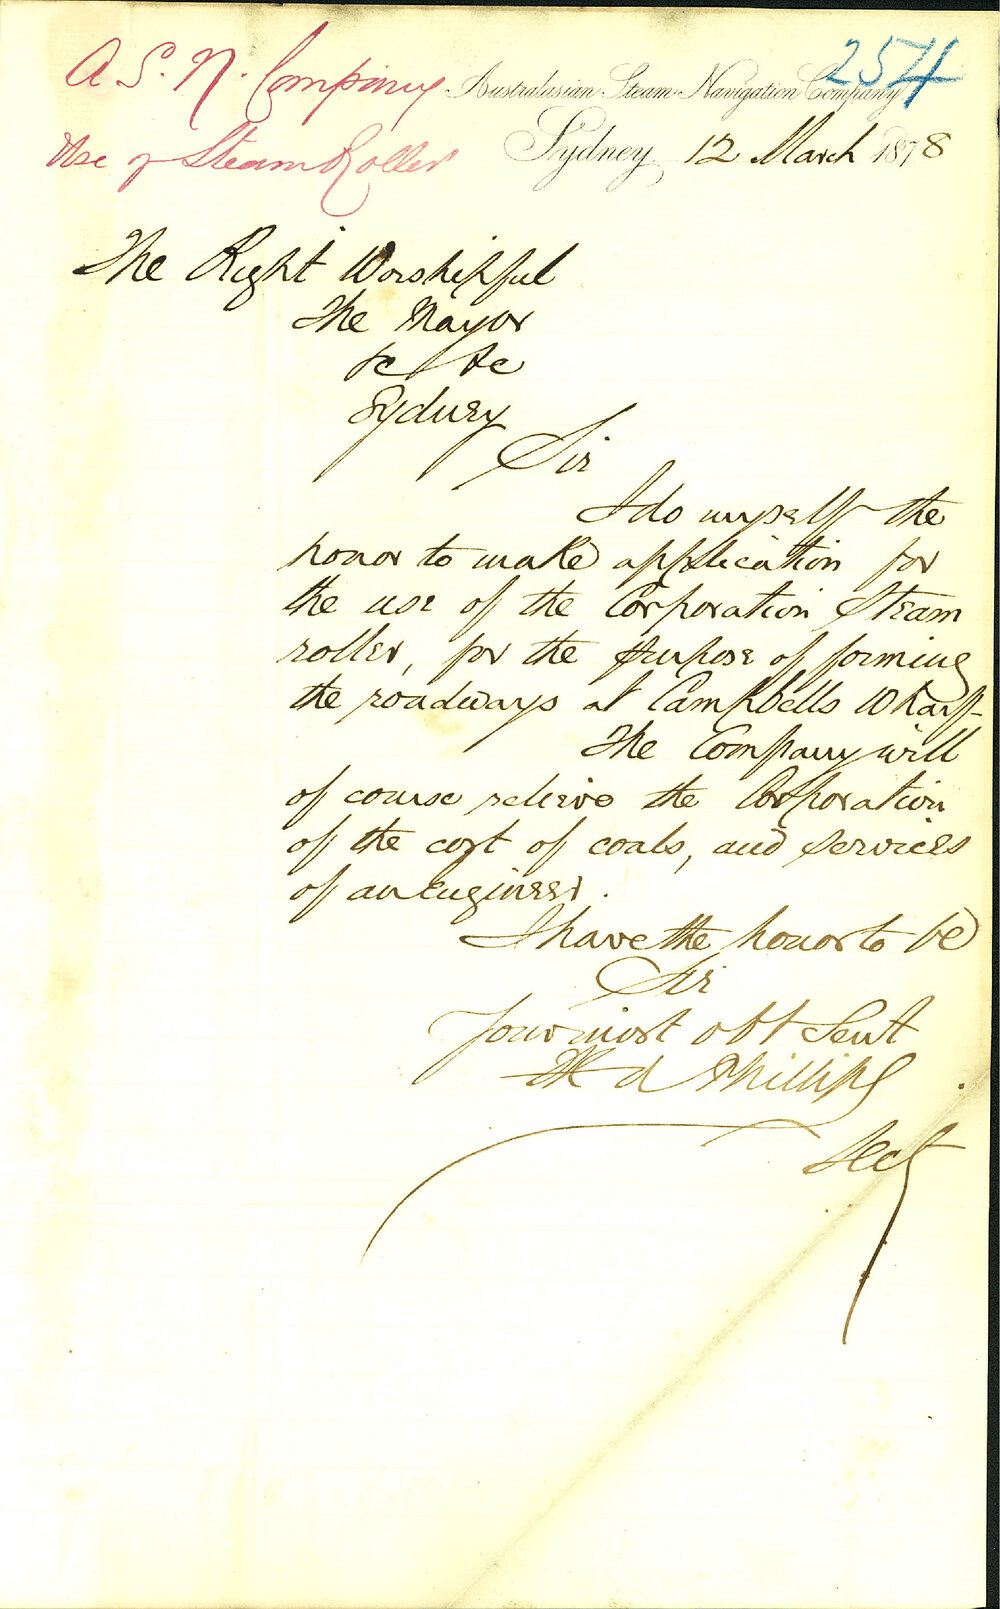 A. S. N. Company
Use of Steam Roller
254
Australasian Steam Navigation Company
Sydney 12 March 1878
The Right Worshipful
The Mayor
&c &c
Sydney
Sir
I do myself the
honor to make application for
the use of the Corporation Steam
roller, for the purpose of forming
the roadways at Campbells Wharf
The Company will
of course relieve the Corporation
of the cost of coals, and services
of an Engineer.
I have the honor to be
Sir
Your most obt Sevt
Phillips
Secy